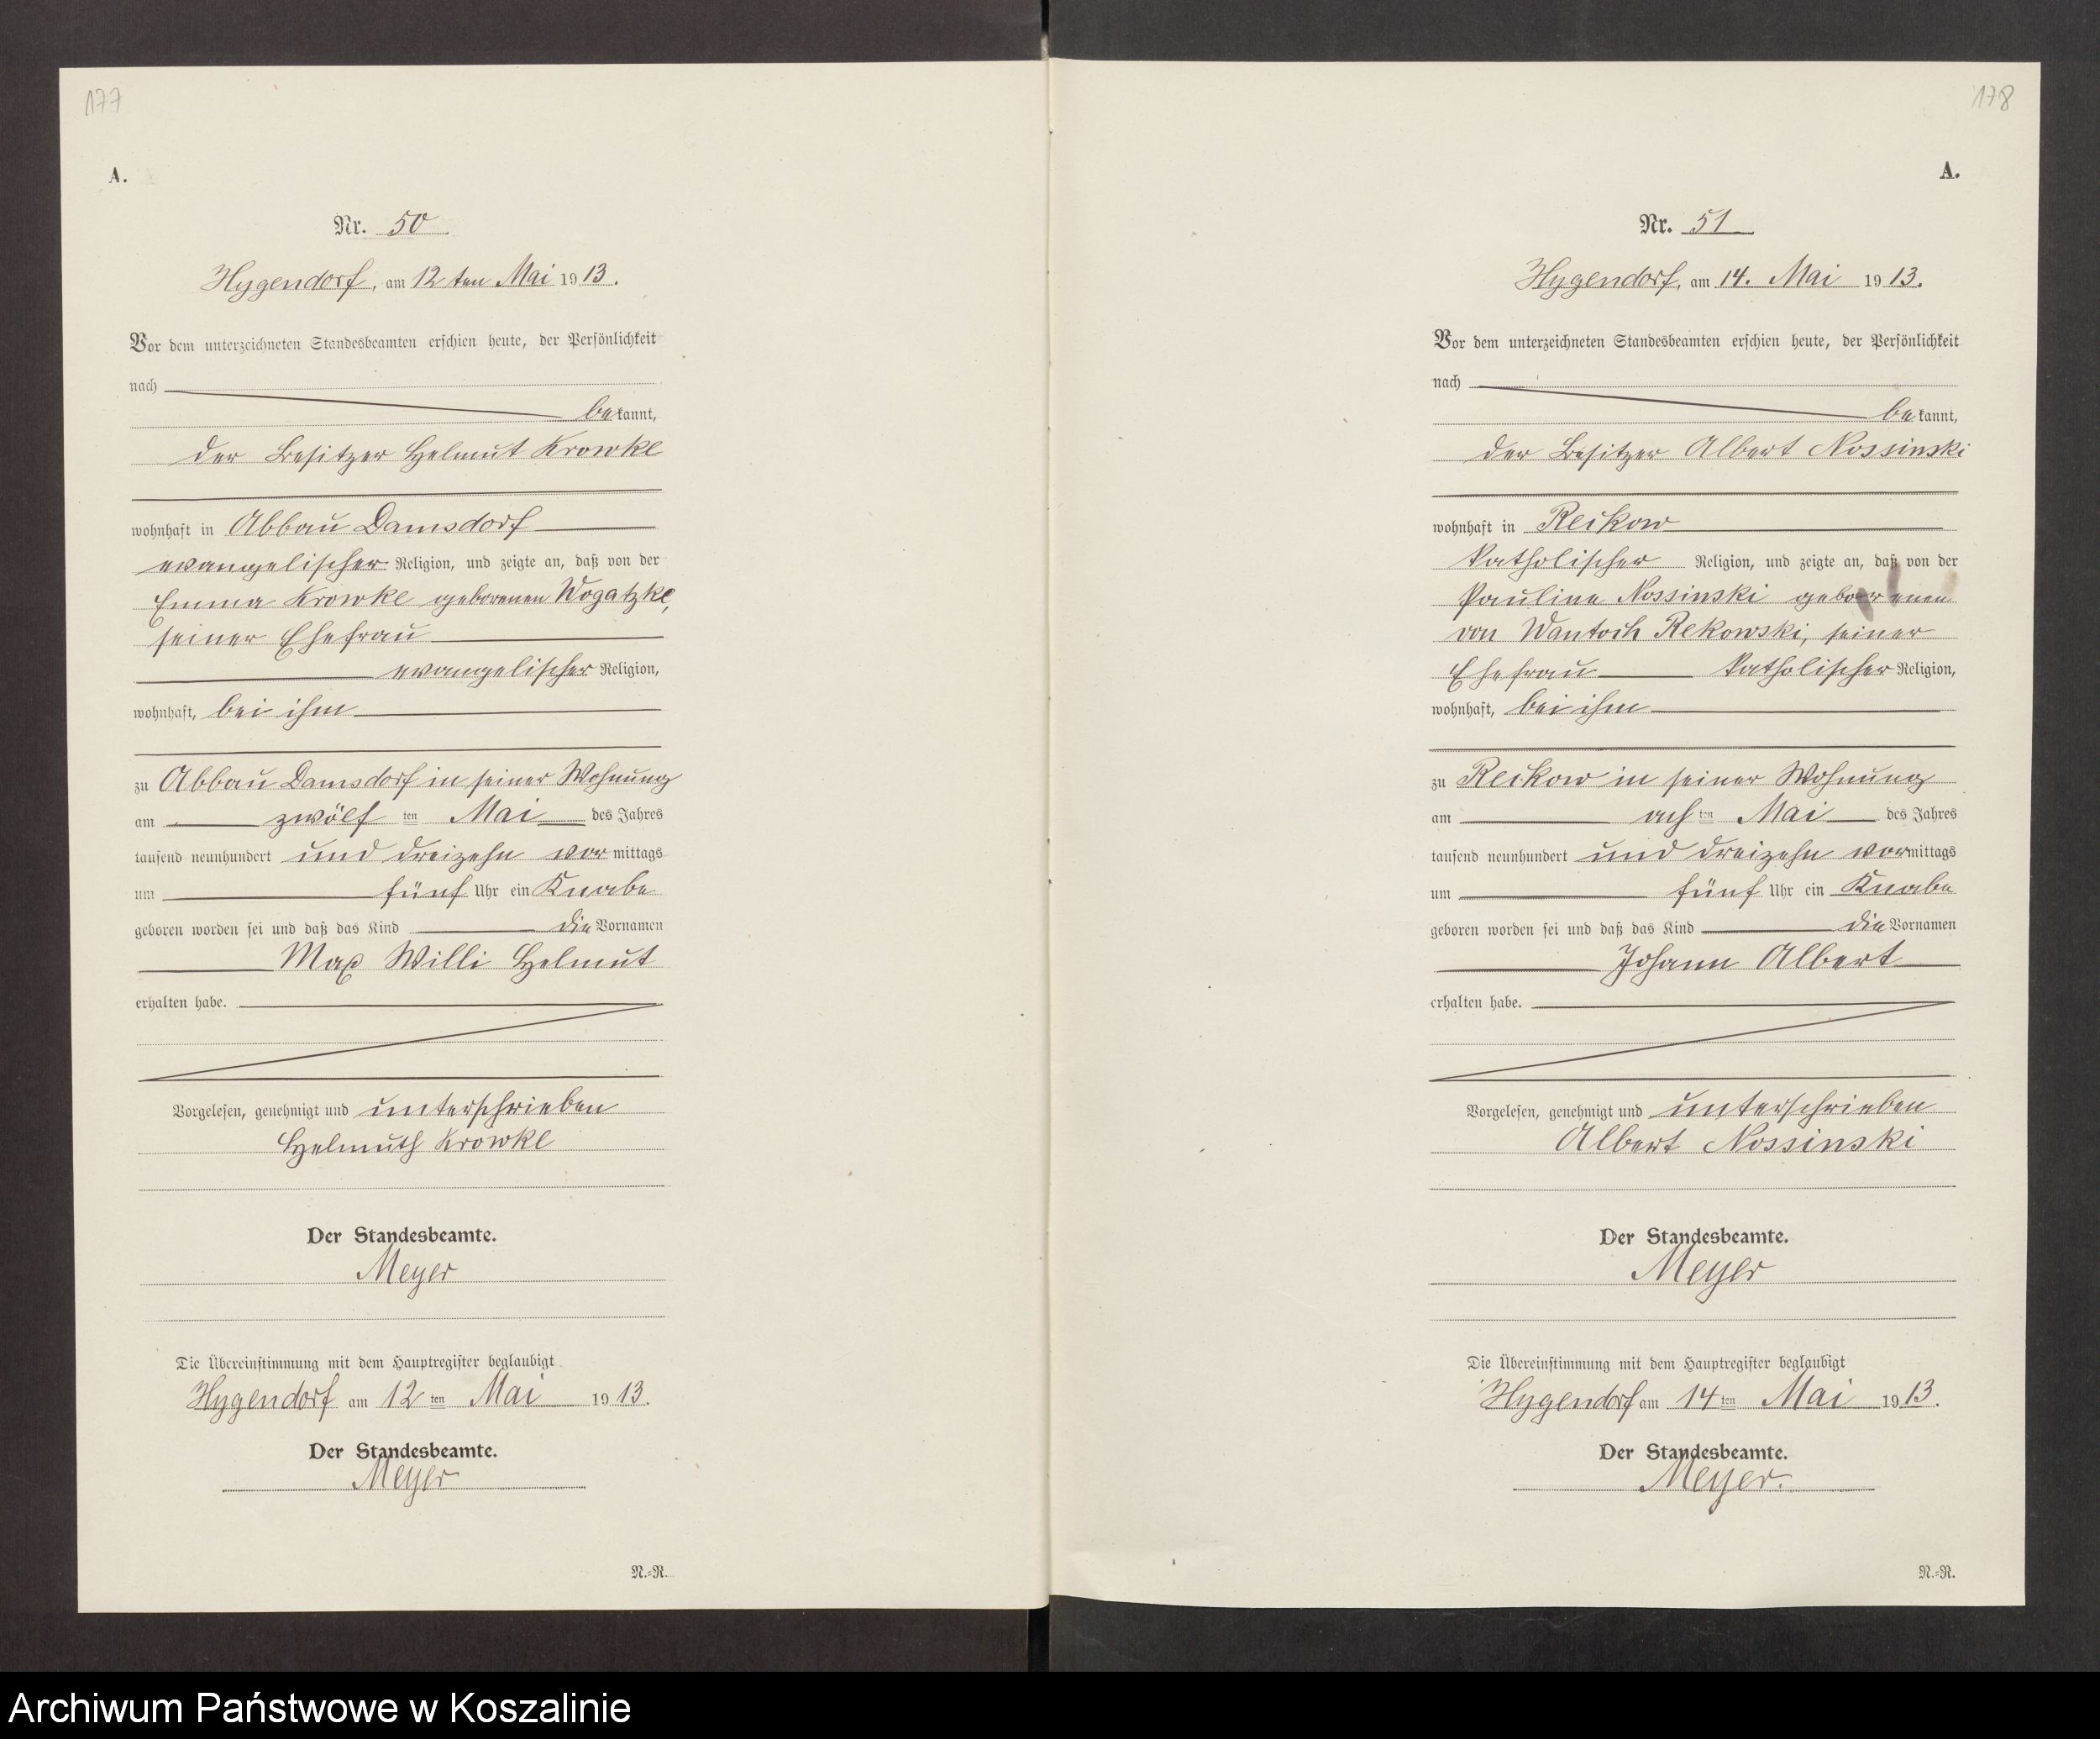 177
A.
Nr. 50
Hygendorf, am 12 ten Mai 1913.
Vor dem unterzeichneten Standesbeamten erschien heute, der Persönlichkeit
nach
bekannt,
der Besitzer Helmut Krowke
wohnhaft in Abbau Damsdorf
evangelischer Religion, und zeigte an, daß von der
Emma Krowke geborenen Wogatzke,
seiner Ehefrau
evangelischer Religion,
wohnhaft, bei ihm
zu Abbau Damsdorf in seiner Wohnung
am zwölf ten Mai des Jahres
tausend neunhundert und dreizehn vormittags
um fünf Uhr ein Knabe
geboren worden sei und daß das Kind die Vornamen
Max Willi Helmut
erhalten habe.
Vorgelesen, genehmigt und unterschrieben
Helmuth Krowke
Der Standesbeamte.
Meyer
Die Übereinstimmung mit dem Hauptregister beglaubigt
Hygendorf am 12 ten Mai 1913.
Der Standesbeamte.
Meyer
N.=R.
178
A.
Nr. 51
Hygendorf, am 14. Mai 1913.
Vor dem unterzeichneten Standesbeamten erschien heute, der Persönlichkeit
nach
bekannt,
der Besitzer Albert Nossinski
wohnhaft in Reikow
katholischer Religion, und zeigte an, daß von der
Pauline Nossinski geborenen
von Wantoch Rekowski, seiner
Ehefrau katholischer Religion,
wohnhaft, bei ihm
zu Reikow in seiner Wohnung
am ach ten Mai des Jahres
tausend neunhundert und dreizehn vormittags
um fünf Uhr ein Knabe
geboren worden sei und daß das Kind die Vornamen
Johann Albert
erhalten habe.
Vorgelesen, genehmigt und unterschrieben
Albert Nossinski
Der Standesbeamte.
Meyer
Die Übereinstimmung mit dem Hauptregister beglaubigt
Hygendorf am 14 ten Mai 1913.
Der Standesbeamte.
Meyer.
N.=R.
Archiwum Państwowe w Koszalinie